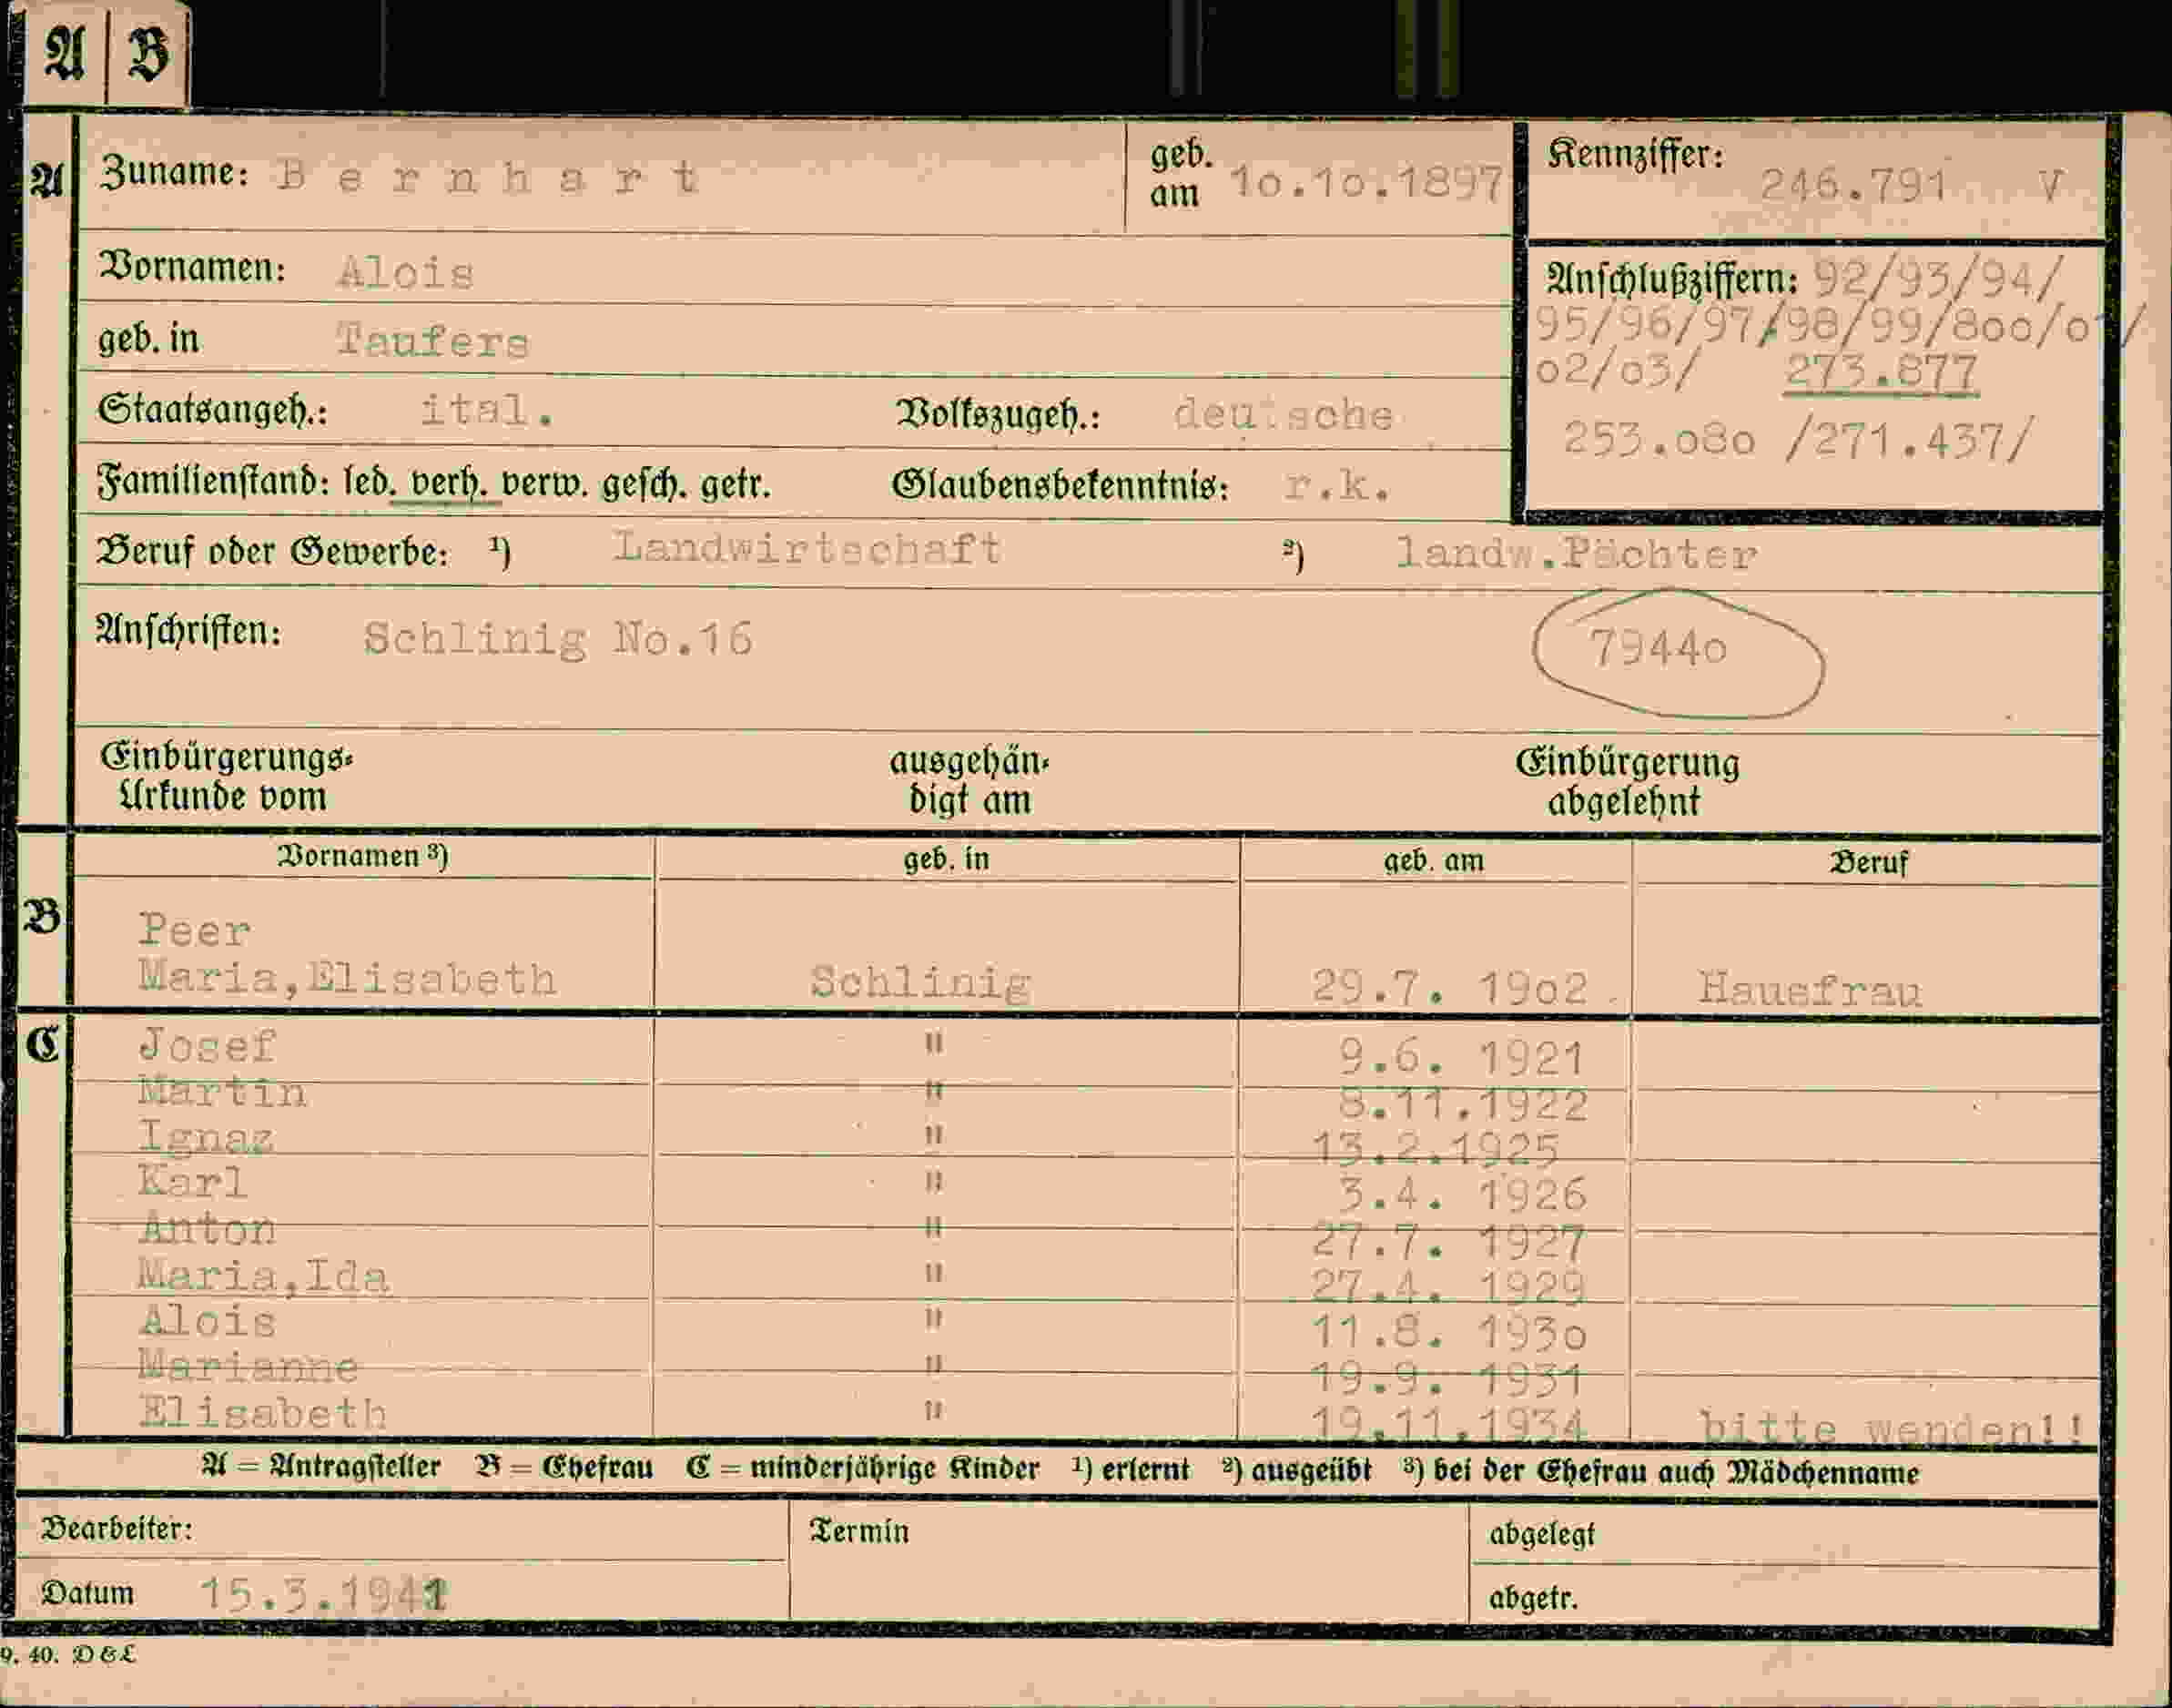 A B
A Zuname: Bernhart geb. am 1o.1o.1897 Kennziffer: 246.791 V
Vornamen: Alois Anschlußziffern: 92/93/94/
geb. in Taufers 95/96/97/98/99/8oo/o1/
o2/o3/ 273.877
Staatsangeh.: ital. Volkszugeh.: deutsche 253.o8o /271.437/
Familienstand: led. verh. verw. gesch. getr. Glaubensbekenntnis: r.k.
Beruf oder Gewerbe: ¹) Landwirtschaft ²) landw.Pächter
Anschriften: Schlinig No.16 7944o
Einbürgerungs- ausgehän- Einbürgerung
Urkunde vom digt am abgelehnt
Vornamen ³) geb. in geb. am Beruf
B Peer
Maria,Elisabeth Schlinig 29.7. 19o2 Hausfrau
C Josef " 9.6. 1921
Martin " 8.11.1922
Ignaz " 13.2.1925
Karl " 3.4. 1926
Anton " 27.7. 1927
Maria,Ida " 27.4. 1929
Alois " 11.8. 193o
Marianne " 19.9. 1931
Elisabeth " 19.11.1934 bitte wenden!!
A = Antragsteller B = Ehefrau C = minderjährige Kinder ¹) erlernt ²) ausgeübt ³) bei der Ehefrau auch Mädchenname
Bearbeiter: Termin abgelegt
Datum 15.3.1941 abgetr.
9. 40. D & L